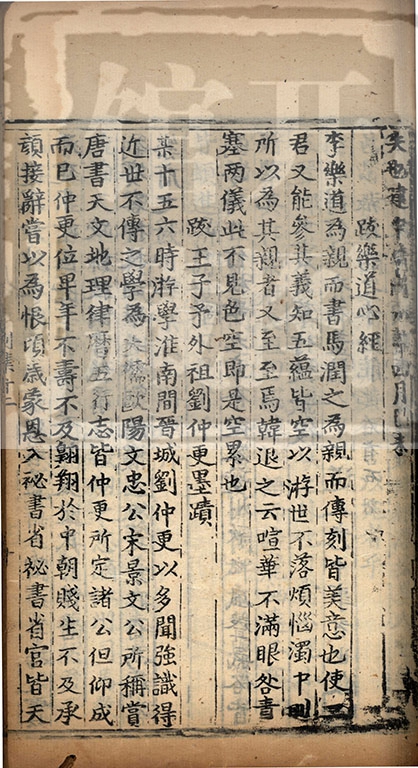 跋樂道心經
李樂道為親而書馬潤之為親而傳刻皆美意也使二
君又能參其義知五蘊皆空以游世不落煩惱濁中則
所以為其親者又至至焉韓退之云喧華不滿眼咎責
塞兩儀此不見色空即是空累也
跋王子予外祖劉仲更墨蹟
某十五六時游學淮南間晉城劉仲更以多聞強識得
近世不傳之學為大儒歐陽文忠公宋景文公所稱賞
唐書天文地理律曆五行志皆仲更所定諸公但仰成
而已仲更位卑年不壽不及翱翔於中朝賤生不及承
顔接辭嘗以為恨頃歲蒙恩入祕書省祕書省官皆天